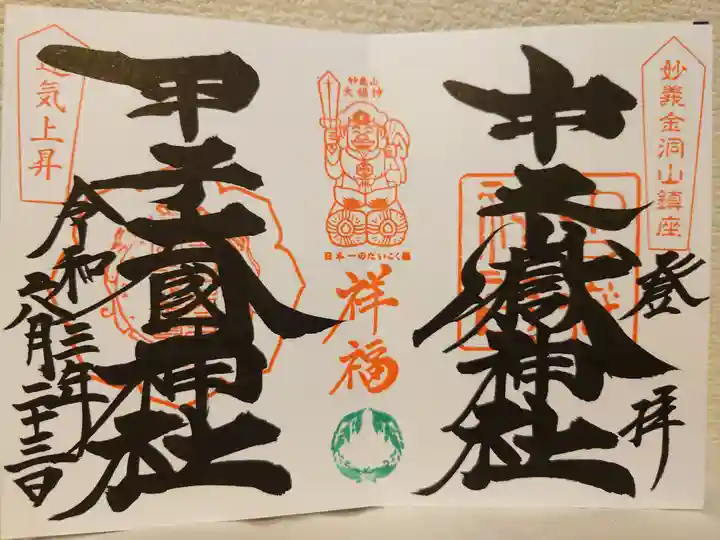 妙義金洞山鎮座
登拝
中之嶽神社
妙義山
大福神
日本一のだいこく様
祥福
甲子大國神社
運気上昇
令和三年
八月二十三日